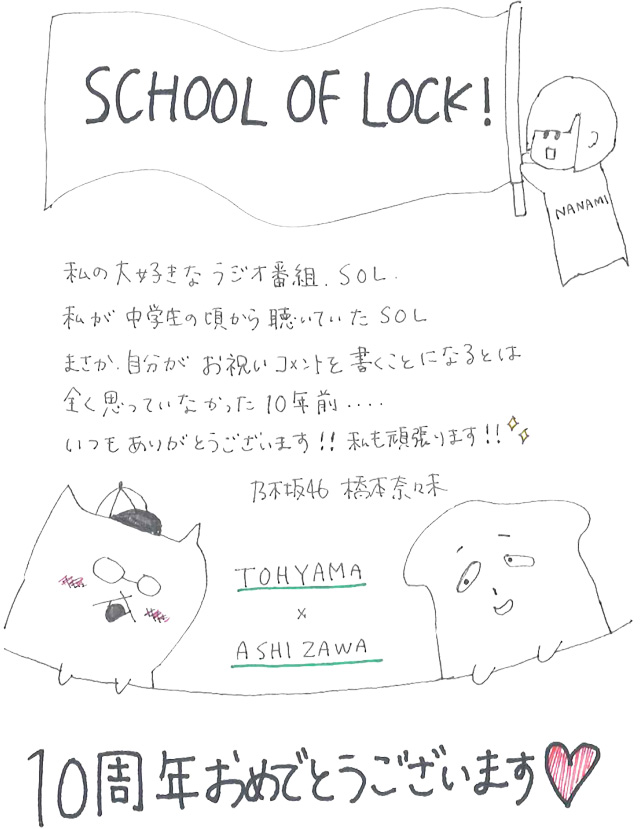 SCHOOL OF LOCK!
NANAMI
私の大好きなラジオ番組.SOL.
私が中学生の頃から聴いていたSOL
まさか.自分がお祝いコメントを書くことになるとは
全く思っていなかった10年前....
いつもありがとうございます!!私も頑張ります!!
乃木坂46 橋本奈々未
TOHYAMA
×
ASHIZAWA
10周年おめでとうございます